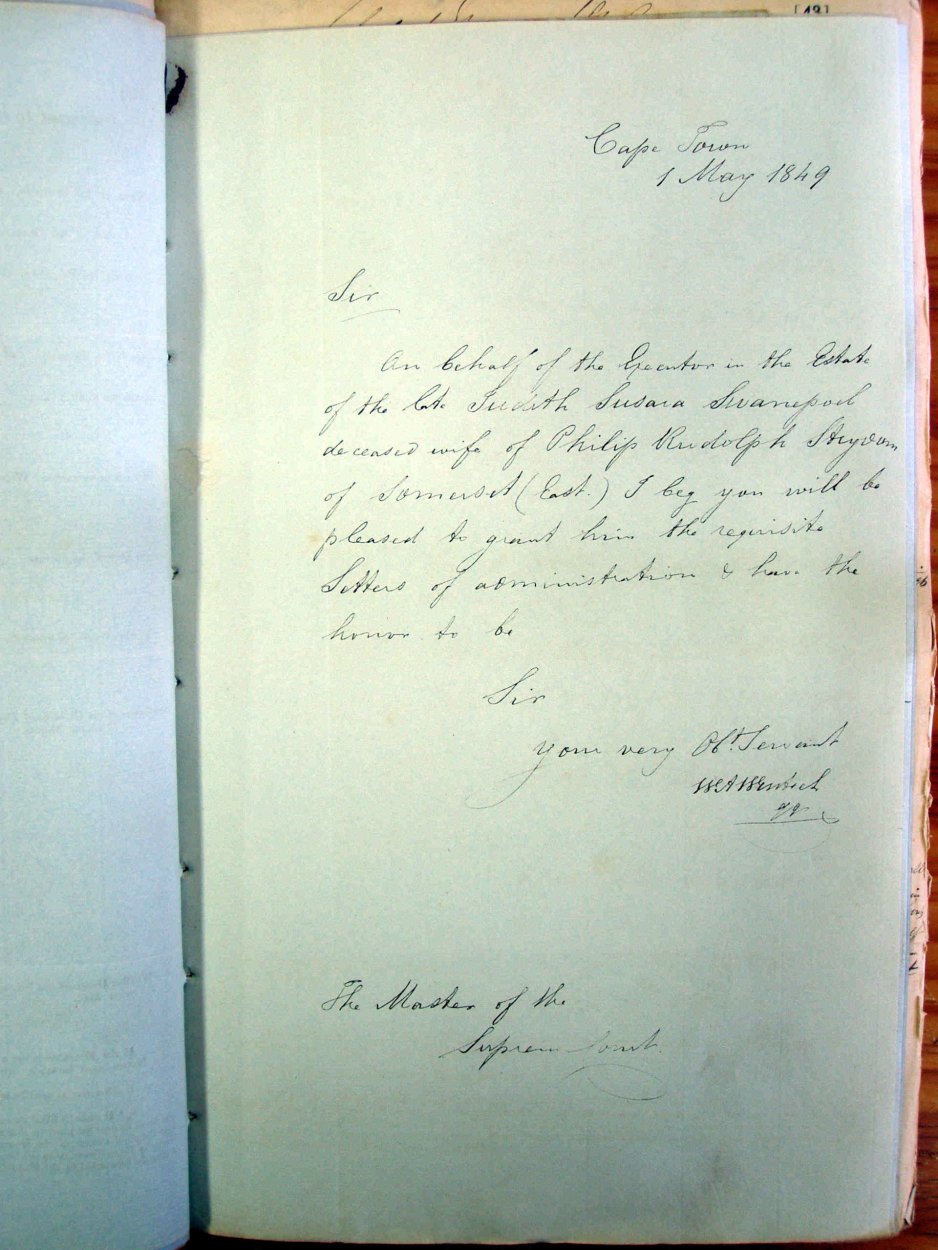 [42]
Cape Town
1 May 1849
Sir
On behalf of the Executor in the Estate
of the late Judith Susara Swanepoel
deceased wife of Philip Rudolph Strydom
of Somerset (East.) I beg you will be
pleased to grant him the requisite
Letters of administration & have the
honor to be
Sir
Your very Obt. Servant
The Master of the
Supreme Court